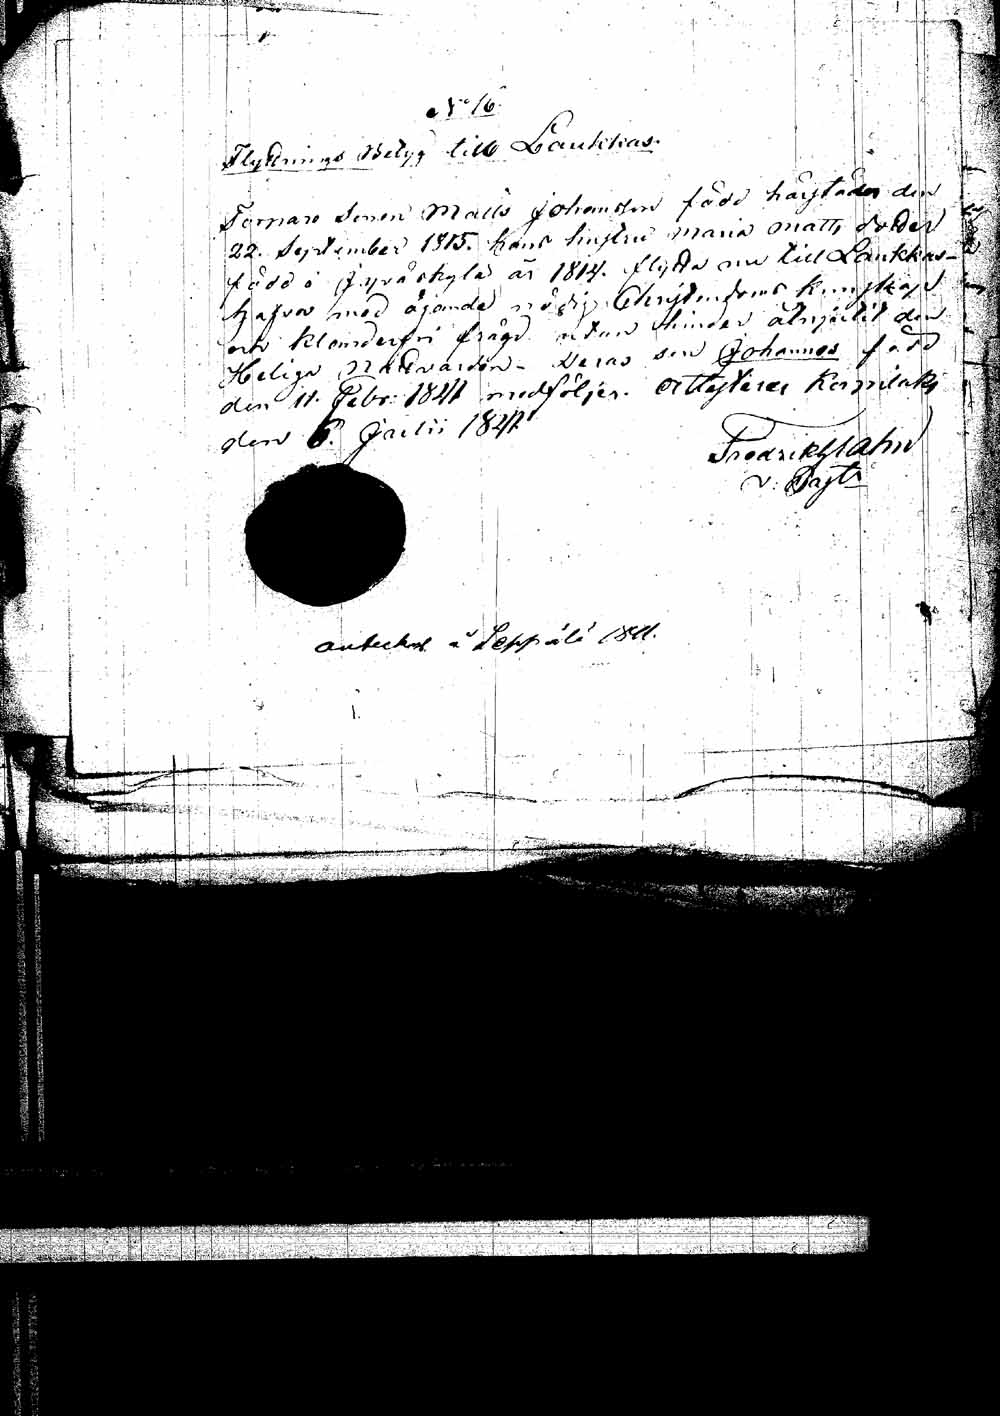 No 16.
Flyttnings Betyg till Laukkas.
Torpare Sonen Matts Johansson född härstädes den
22. September 1815. hans hustru Maria Matts dotter
född i Jyväskylä år 1814. flytta nu till Laukkas-
hafva med ägande nödig Christendoms kunskap
och klanderfri frägd utan hinder åtnjutit den
Heliga Nattvarden. Deras son Johannes född
den 11. Febr: 1841 medföljer. Attesteras Korpilaks
den 6. Julii 1841
Fredrik Hahn
v: Past:
anteckn. å Leppälä 1841.